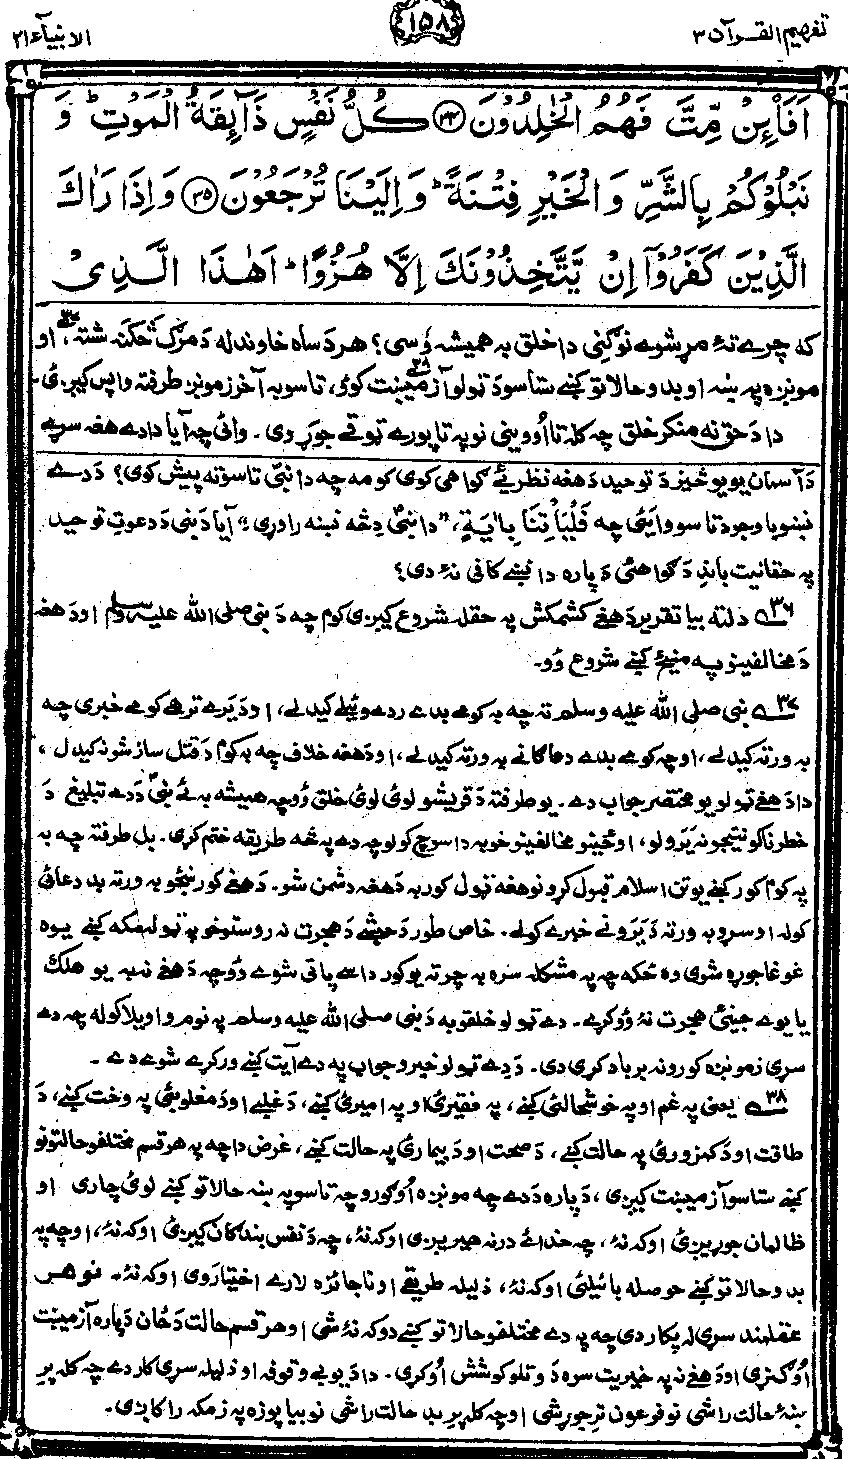 تفہیم القرآن ۳
۱۵۸
الانبیآء ۲۱
اَفَاۡئِنۡ مِّتَّ فَهُمُ الۡخٰلِدُوۡنَ ﴿۳۴﴾ كُلُّ نَفۡسٍ ذَآئِقَةُ الۡمَوۡتِ ؕ وَ
نَبۡلُوۡكُمۡ بِالشَّرِّ وَالۡخَيۡرِ فِتۡنَةً ؕ وَاِلَيۡنَا تُرۡجَعُوۡنَ ﴿۳۵﴾ وَاِذَا رَاٰكَ
الَّذِيۡنَ كَفَرُوۡۤا اِنۡ يَّتَّخِذُوۡنَكَ اِلَّا هُزُوًا ؕ اَهٰذَا الَّذِىۡ
که چرے تۀ مړ شوے نو ګنی دا خلق به همیشه وُسی؟ هر د ساه خاوند له د مرګ څکنه شته،۳۷ او
مونږه په ښه او بدو حالاتو کښے ستاسو د ټولو آزمېښت کوو،۳۸ تاسو به آخر زمونږ طرفته واپس کیږیٔ۔
دا د حق نه منکر خلق چه کله تا اُووینی نو په تا پورے ټوقے جوړوی۔ وائی چه آیا دا دے هغه سړے
دَ آسمان یو یو څیز دَ توحید دَ هغه نظریے ګواهی کوی کومه چه دا نبیؐ تاسو ته پیش کوی؟ دَ دے
نښو باوجود تاسو وایٔی چه فَلۡيَاۡتِنَا بِاٰيَةٍ، "دا نبیؐ دِ څه نښه راوړی" آیا دَ نبی دَ دعوتِ توحید
په حقانیت باندِ دَ ګواهیٔ دَپاره دا نښے کافی نۀ دی؟
۳۶ دلته بیا تقریر دَ هغے کشمکش په حقله شروع کیږی کوم چه دَ نبی صلی الله علیه وسلم او دَ هغه
دَ مخالفینو په منځ کښے شروع وُو۔
۳۷ نبی صلی الله علیه وسلم ته چه به کومے بدے ردے وئیلے کیدلے، او دَ یَرے ترهے کومے خبری چه
به ورته کیدلے، او چه کومے بدے دعاګانے به ورته کیدلے، او دَ هغه خلاف چه به کوم دَ قتل سازشونه کیدل،
دا دَ هغے ټولو یو مختصر جواب دے۔ یو طرفته دَ قریشو لویٔ لویٔ خلق وُو چه همیشه به یٔے نبیؐ دَ دے تبلیغ دَ
خطرناکو نتیجو نه یَرَولو، او ځینو مخالفینو خو به دا سوچ کولو چه دے په څه طریقه ختم کړی۔ بل طرفته چه به
په کوم کور کښے یو تن اسلام قبول کړو نو هغه ټول کور به دَ هغه دشمن شو۔ دَ هغے کور ښځو به ورته بد دعائی
کولے او سړو به ورته دَ یَرَونے خبرے کولے۔ خاص طور دَ حبشے دَ هجرت نه روستو خو په ټوله مکه کښے یوه
غوغا جوړه شوی وه ځکه چه په مشکله سره به چرته یو کور داسے پاتی شوے وُو چه دَ هغے نه به یو هلک
یا یوے جینیٔ هجرت نۀ وُو کړے۔ دے ټولو خلقو به دَ نبی صلی الله علیه وسلم په نوم واویلا کوله چه دے
سړی زمونږه کورونه برباد کړی دی۔ دَ دے ټولو خبرو جواب په دے آیت کښے ورکړے شوے دے۔
۳۸ یعنی په غم او په خوشحالیٔ کښے، په فقیریٔ او په امیریٔ کښے، دَ غلبے او دَ مغلوبیٔ په وخت کښے، دَ
طاقت او دَ کمزوریٔ په حالت کښے، دَ صحت او دَ بیماریٔ په حالت کښے، غرض دا چه په هر قسم مختلفو حالتونو
کښے ستاسو آزمېښت کیږی، دَپاره دَ دے چه مونږه اُوګورو چه تاسو په ښه حالاتو کښے لویٔ چاری او
ظالمان جوړیږیٔ او که نۀ، چه خدائے درنه هیریږی او که نۀ، چه دَ نفس بندګان کیږیٔ او که نۀ، او چه په
بدو حالاتو کښے حوصله بائیلیٔ او که نۀ، ذلیله طریقے او ناجائزه لارے اختیاروی او که نۀ۔ نو هر
عقلمند سړی له پکار دی چه په دے مختلفو حالاتو کښے دوکه نۀ شی او هر قسم حالت دَ ځان دَپاره آزمېښت
اُوګڼری او دَ هغے نه په خیریت سره دَ وتلو کوشش اُوکړی۔ دا دَ یو بے وقوفه او ذلیله سړی کار دے چه کله پرِ
ښۀ حالت راشی نو فرعون ترِ جوړ شی او چه کله پرِ بد حالت راشی نو بیا پوزه په زمکه راکاږی۔